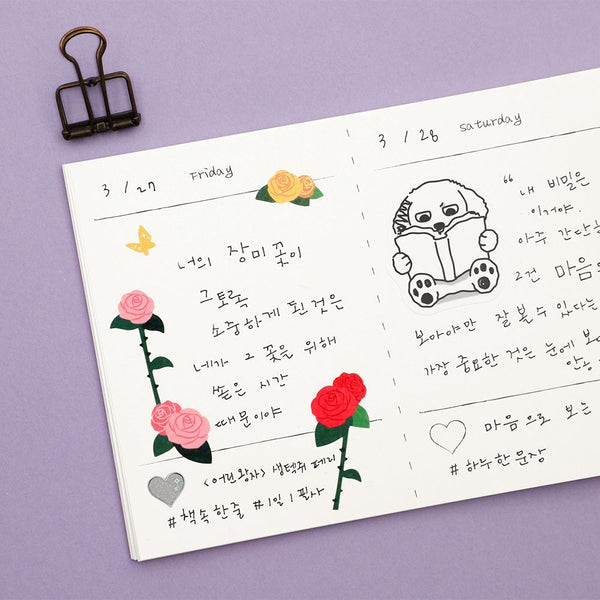 3 / 27 Friday
너의 장미 꽃이
그토록
소중하게 된 것은
네가 그 꽃을 위해
쏟은 시간
때문이야
<어린왕자> 생텍쥐페리
#책속한줄 #1일1필사
3 / 28 saturday
"내 비밀은
이거야.
아주 간단한
그건 마음으로
보아야만 잘 볼 수 있다는
가장 중요한 것은 눈에 보
안
마음으로 보는
#하루한문장